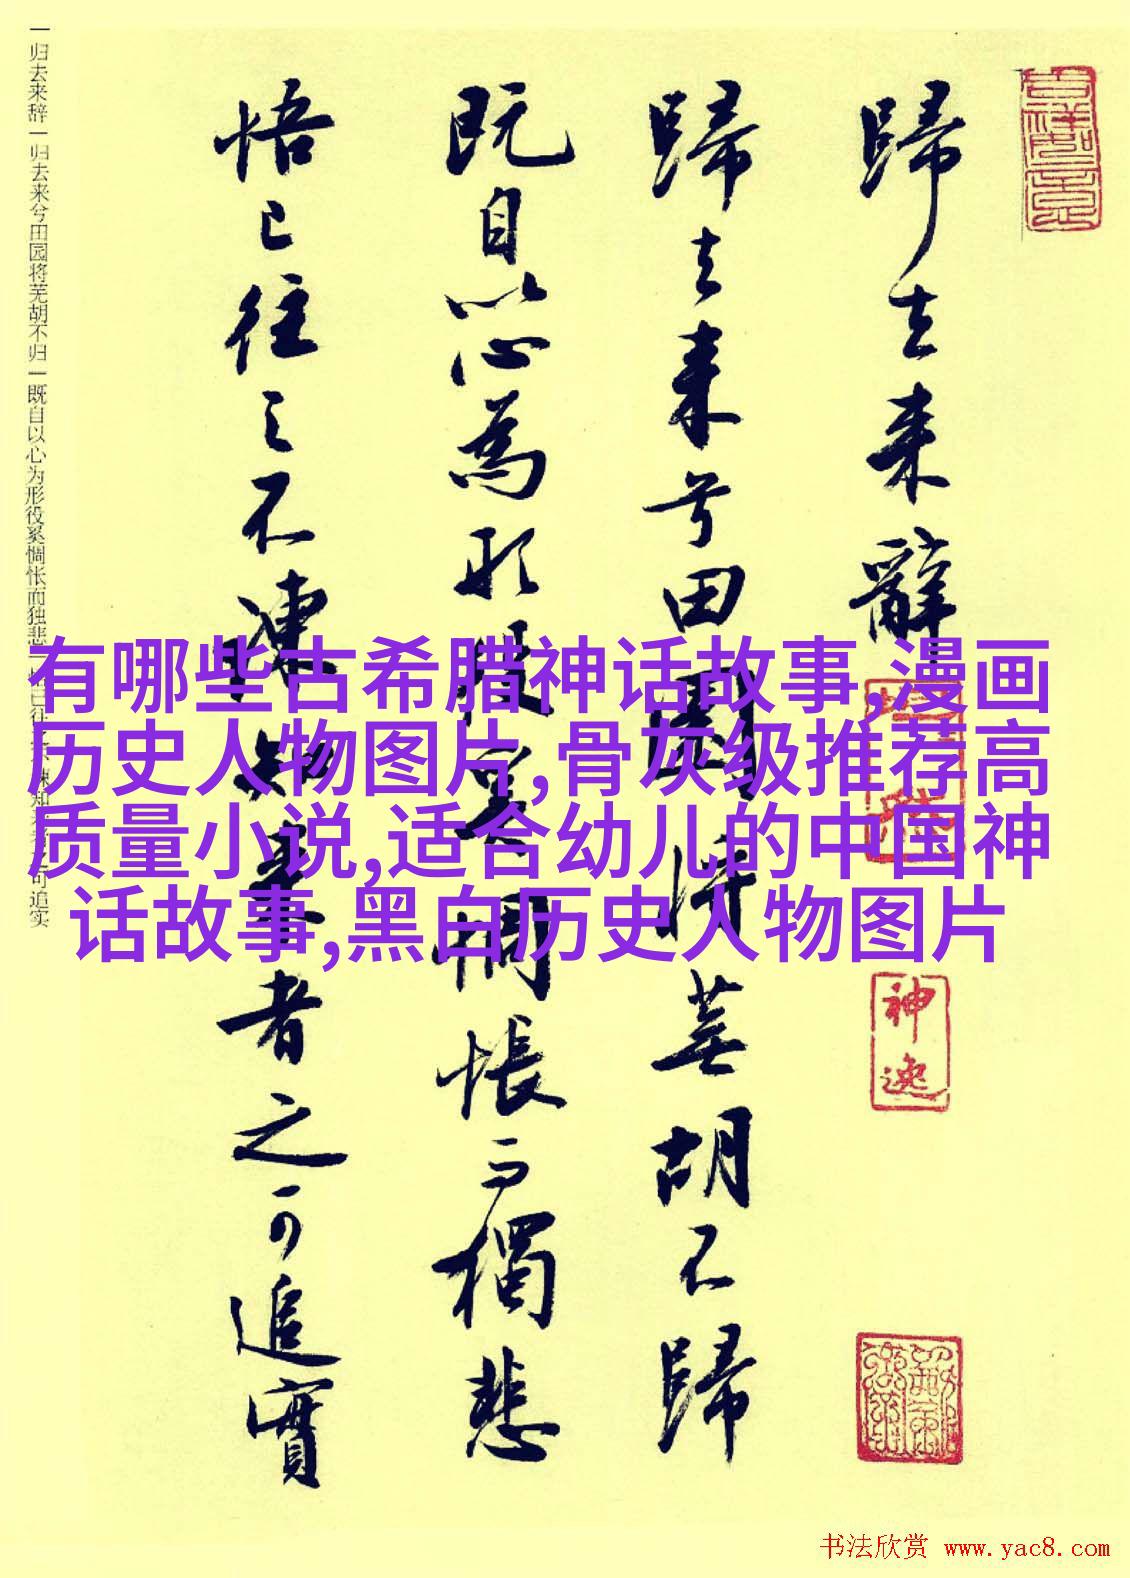 歸去来辭
歸去来兮田園将蕪胡不歸
既自以心為形役奚惆悵而獨悲
悟已往之不諫知来者之可追實
一归去来辞一归去来兮田园将芜胡不归一既自以心为形役奚惆怅而独悲一悟已往之不谏知来者之可追实
有哪些古希腊神话故事,漫画
历史人物图片,骨灰级推荐高
质量小说,适合幼儿的中国神
话故事,黑白历史人物图片
神逸
书法欣赏 www.yac8.com